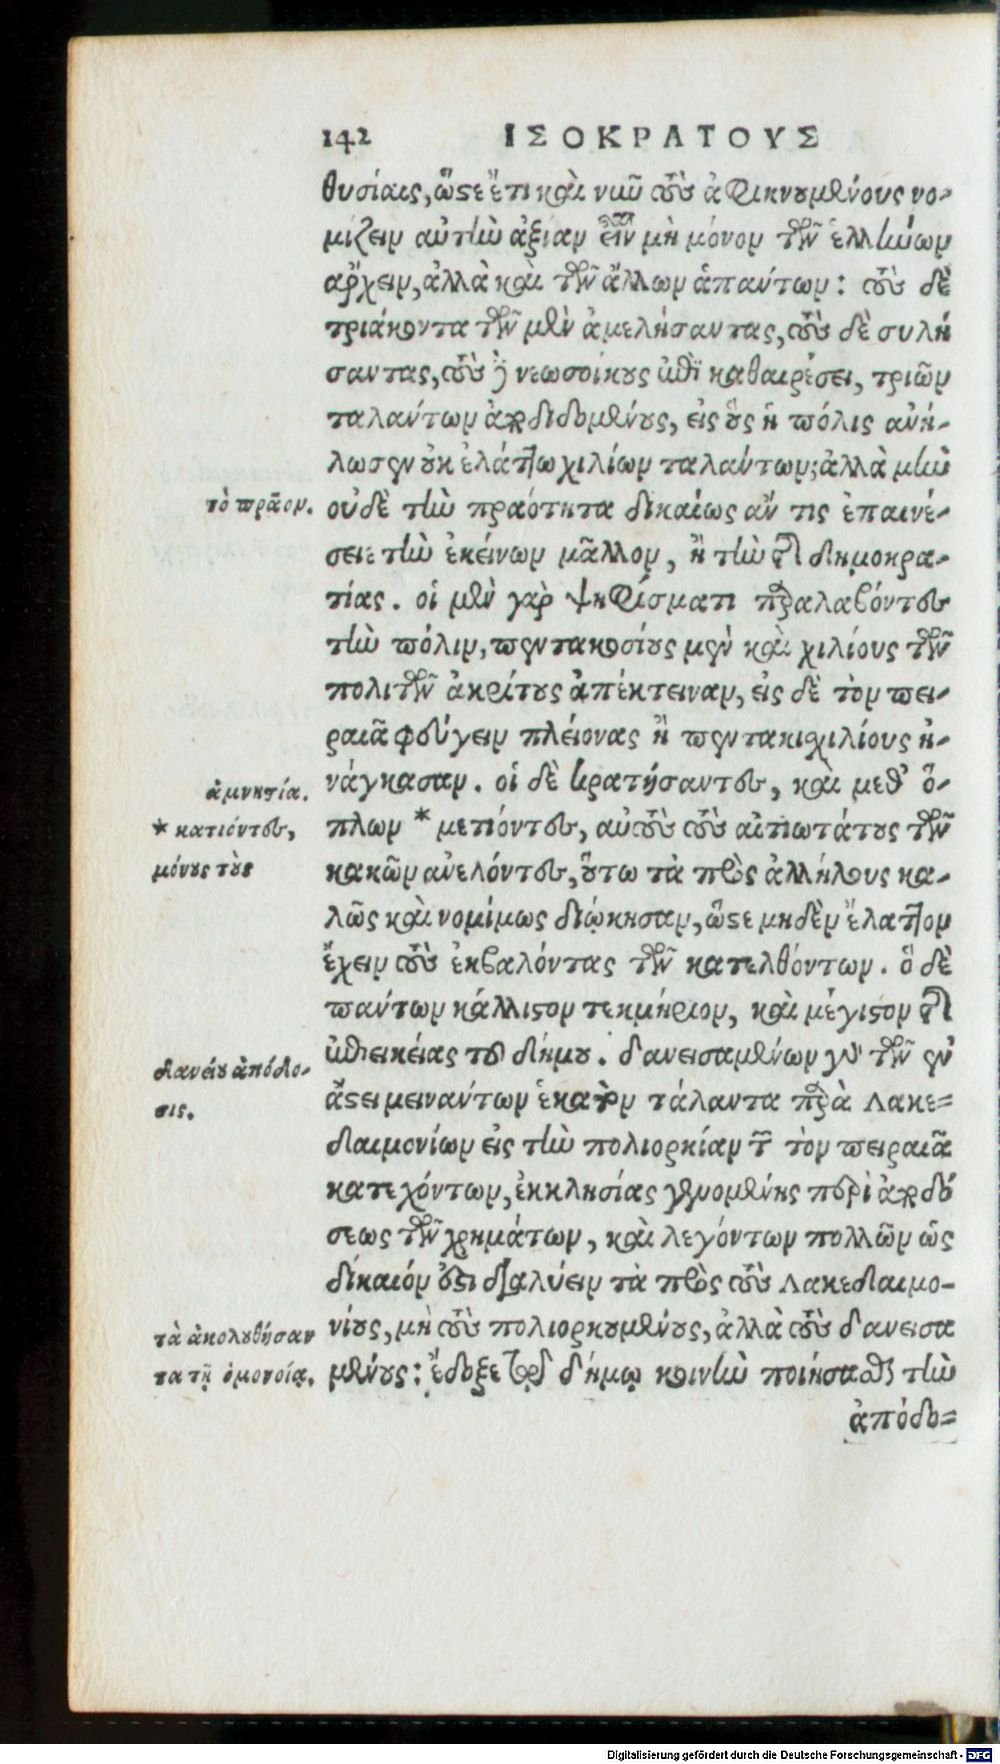 142 ΙΣΟΚΡΑΤΟΥΣ
θυσίαις, ὥστε ἔτι καὶ νῦν τοὺς ἀφικνουμένους νο-
μίζειν αὐτὴν ἀξίαν εἶναι μὴ μόνον τῶν ἑλλήνων
ἄρχειν, ἀλλὰ καὶ τῶν ἄλλων ἁπάντων: τοὺς δὲ
τριάκοντα τῶν μὲν ἀμελήσαντας, τοὺς δὲ συλή
σαντας, τοὺς δὲ νεωσοίκους ἐπὶ καθαιρέσει, τριῶν
ταλάντων ἀποδιδομένους, εἰς οὓς ἡ πόλις ἀνή-
λωσεν οὐκ ἐλάττω χιλίων ταλάντων; ἀλλὰ μὴν
τὸ πρᾶον.
οὐδὲ τὴν πραότητα δικαίως ἄν τις ἐπαινέ-
σειε τὴν ἐκείνων μᾶλλον, ἢ τὴν τῆς δημοκρα-
τίας. οἱ μὲν γὰρ ψηφίσματι παραλαβόντες
τὴν πόλιν, πεντακοσίους μὲν καὶ χιλίους τῶν
πολιτῶν ἀκρίτους ἀπέκτειναν, εἰς δὲ τὸν πει-
ραιᾶ φεύγειν πλείονας ἢ πεντακισχιλίους ἠ-
ἀμνηστία.
νάγκασαν. οἱ δὲ κρατήσαντες, καὶ μεθ' ὅ-
* κατιόντες,
πλων * μετιόντες, αὐτοὺς τοὺς αἰτιωτάτους τῶν
μόνους τοὺς
κακῶν ἀνελόντες, οὕτω τὰ πρὸς ἀλλήλους κα-
λῶς καὶ νομίμως διῴκησαν, ὥστε μηδὲν ἔλαττον
ἔχειν τοὺς ἐκβαλόντας τῶν κατελθόντων. ὃ δὲ
πάντων κάλλιστον τεκμήριον, καὶ μέγιστον τῆς
ἐπιεικείας τοῦ δήμου. δανεισαμένων γὰρ τῶν ἐν
δανείου ἀπόδο-
σις.
ἄστει μεινάντων ἑκατὸν τάλαντα παρὰ Λακε=
δαιμονίων εἰς τὴν πολιορκίαν τῶν τὸν πειραιᾶ
κατεχόντων, ἐκκλησίας γενομένης περὶ ἀποδό
σεως τῶν χρημάτων, καὶ λεγόντων πολλῶν ὡς
δίκαιόν ἐστι διαλύειν τὰ πρὸς τοὺς Λακεδαιμο-
τὰ ἀκολουθήσαν
τα τῇ ὁμονοίᾳ.
νίους, μὴ τοὺς πολιορκουμένους, ἀλλὰ τοὺς δανεισα
μένους: ἔδοξε τῷ δήμῳ κοινὴν ποιήσασθαι τὴν
ἀπόδο=
Digitalisierung gefördert durch die Deutsche Forschungsgemeinschaft - DFG